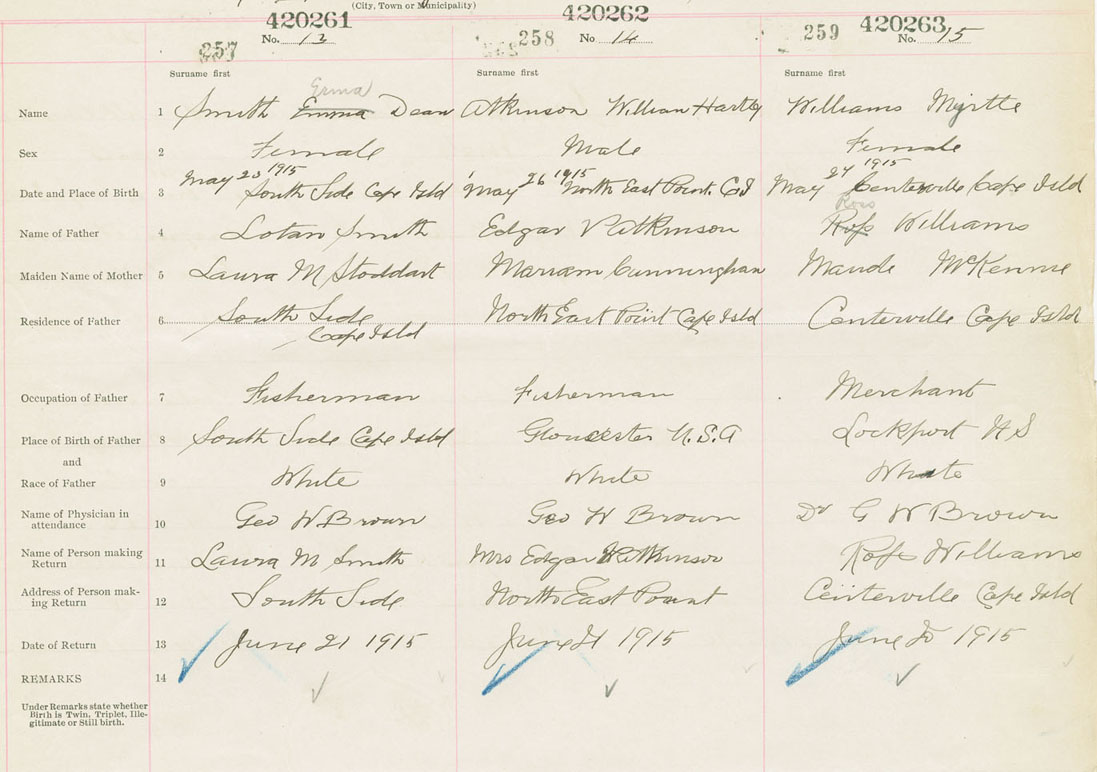 (City, Town or Municipality)
420261 420262 420263
257 No. 13 258 No 14 259 No. 15
Surname first Surname first Surname first
Erma
Name 1 Smith Emma Dean Atkinson William Hartly Williams Myrtle
Sex 2 Female Male Female
Date and Place of Birth 3 May 23 1915 South Side Cape Isld May 26 1915 North East Point C I May 27 1915 Centerville Cape Isld
Ross
Name of Father 4 Lotan Smith Edgar Atkinson Ross Williams
Maiden Name of Mother 5 Laura M Stoddart Mariam Cunningham Maude McKennie
Residence of Father 6 South Side North East Point Cape Isld Centerville Cape Isld
Cape Isld
Occupation of Father 7 Fisherman Fisherman Merchant
Place of Birth of Father 8 South Side Cape Isld Gloucester U.S.A Lockport N S
and
Race of Father 9 White White White
Name of Physician in
attendance 10 Geo W Brown Geo W Brown Dr G W Brown
Name of Person making
Return 11 Laura M Smith Mrs Edgar Atkinson Ross Williams
Address of Person mak-
ing Return 12 South Side North East Point Centerville Cape Isld
Date of Return 13 June 21 1915 June 21 1915 June 1915
REMARKS 14
Under Remarks state whether
Birth is Twin, Triplet, Ille-
gitimate or Still birth.